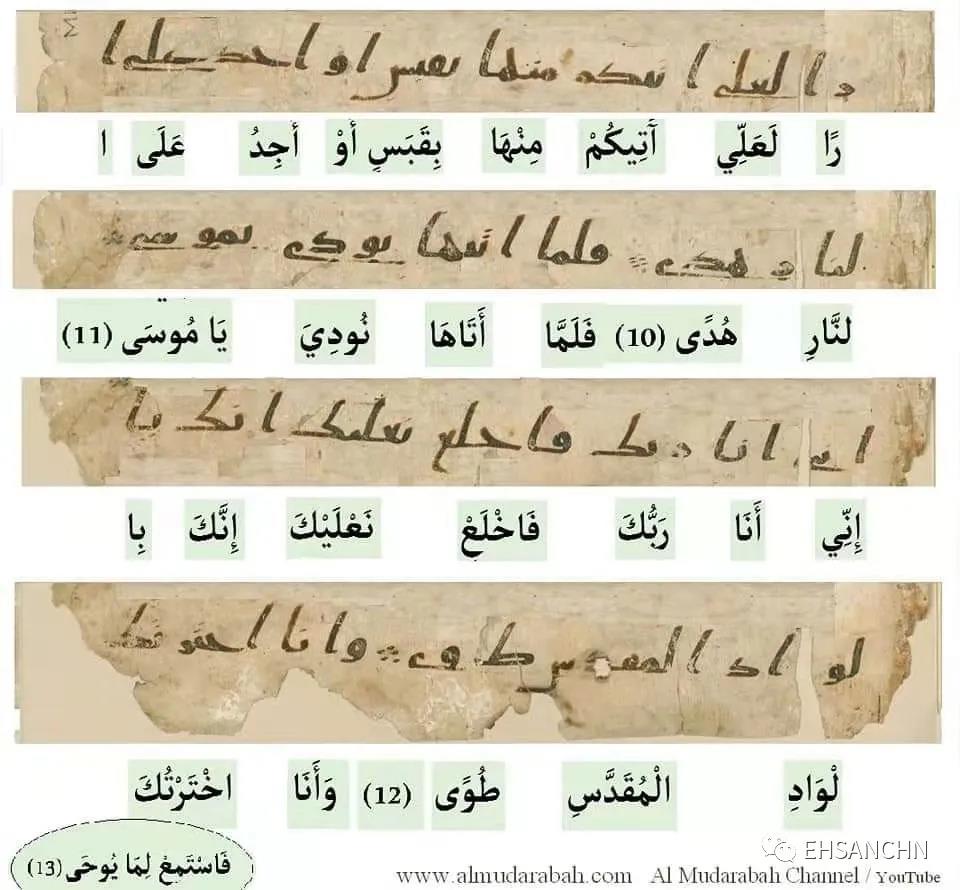 را لعلى اتيكم منها بقبس او اجد على ا
رًا لَعَلِّي آَتِيكُمْ مِنْهَا بِقَبَسٍ أَوْ أَجِدُ عَلَى ا
لنار هدى فلما اتيها نودى يموسى
لنَّارِ هُدًى (10) فَلَمَّا أَتَاهَا نُودِيَ يَا مُوسَى (11)
انى انا ربك فاخلع نعليك انك با
إِنِّي أَنَا رَبُّكَ فَاخْلَعْ نَعْلَيْكَ إِنَّكَ بِا
لواد المقدس طوى وانا اخترتك
لْوَادِ الْمُقَدَّسِ طُوًى (12) وَأَنَا اخْتَرْتُكَ
فَاسْتَمِعْ لِمَا يُوحَى (13)
EHSANCHN
www.almudarabah.com Al Mudarabah Channel / YouTube